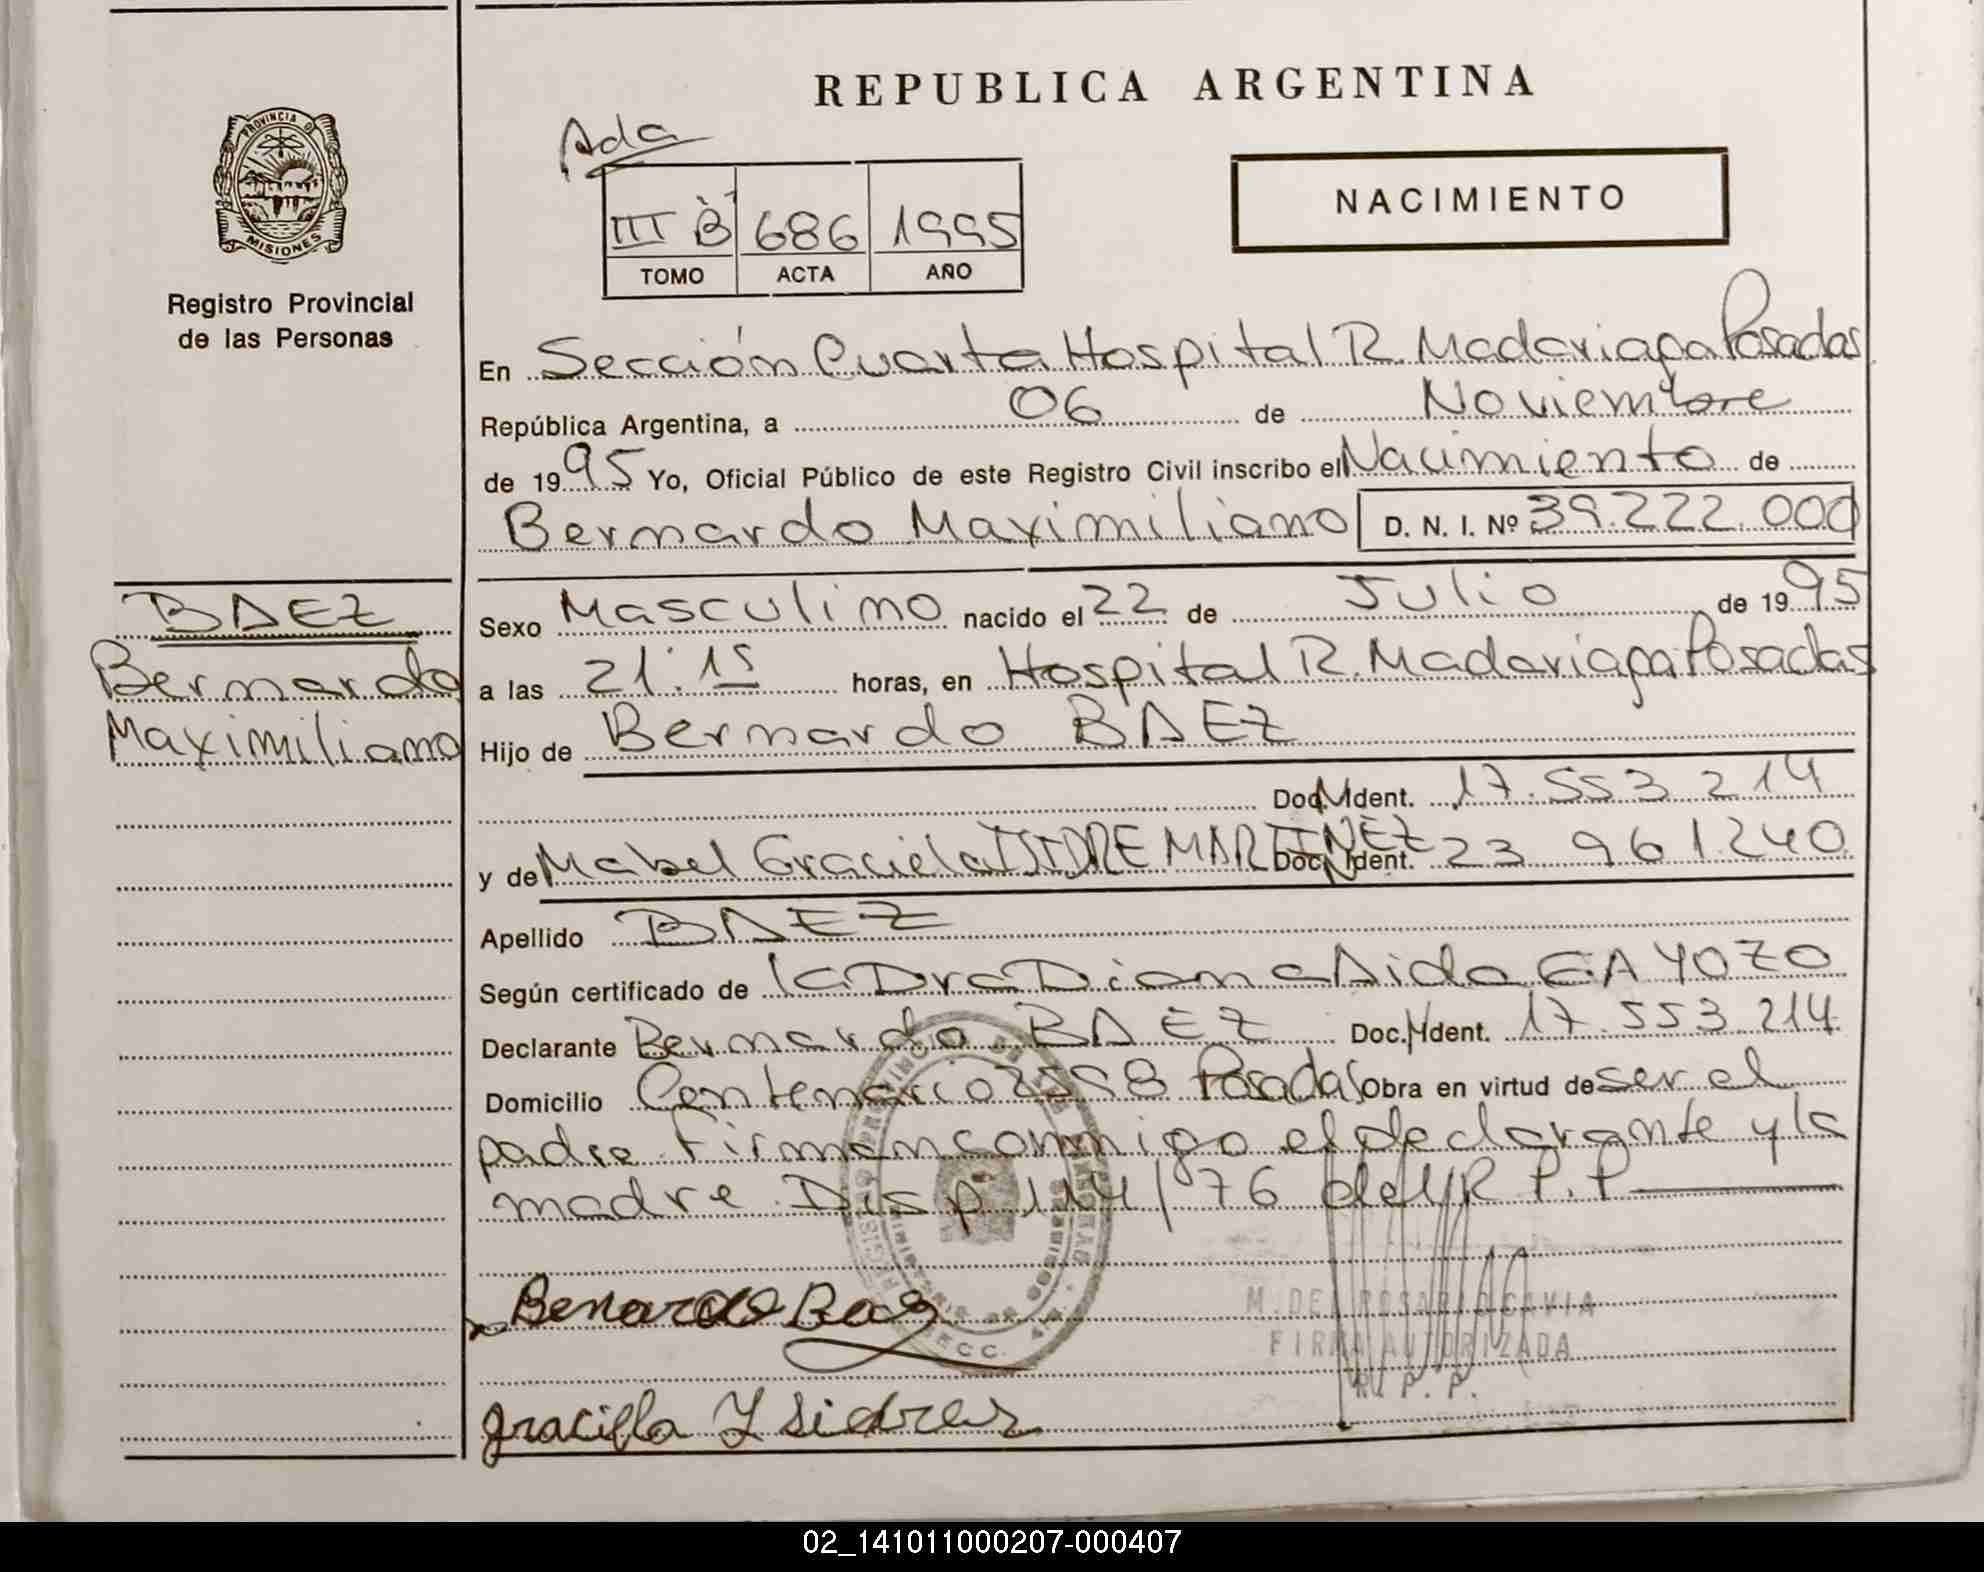 REPUBLICA ARGENTINA
PROVINCIA DE
MISIONES
Registro Provincial
de las Personas
Ada
III B 686 1995
TOMO ACTA AÑO
NACIMIENTO
En Sección Cuarta Hospital R. Madariaga Posadas
República Argentina, a 06 de Noviembre
de 1995 Yo, Oficial Público de este Registro Civil inscribo el Nacimiento de
Bernardo Maximiliano D. N. I. Nº 39.222.000
BAEZ
Bernardo
Maximiliano
Sexo Masculino nacido el 22 de Julio de 1995
a las 21:15 horas, en Hospital R. Madariaga Posadas
Hijo de Bernardo BAEZ
Doc. Ident. 17.553.214
y de Mabel Graciela ISIDRE MARTINEZ Doc. Ident. 23 961.240
Apellido BAEZ
Según certificado de la Dra Diana Aida GAYOZO
Declarante Bernardo BAEZ Doc. Ident. 17.553.214
Domicilio Centenario 2598 Posadas Obra en virtud de ser el
padre. Firman conmigo el declarante y la
madre. Disp. 114/76 del R P.P
Bernardo Baez
M. DEL ROSARIO GAVIA
FIRMA AUTORIZADA
R. P. P.
Graciela Ysidrez
02_141011000207-000407